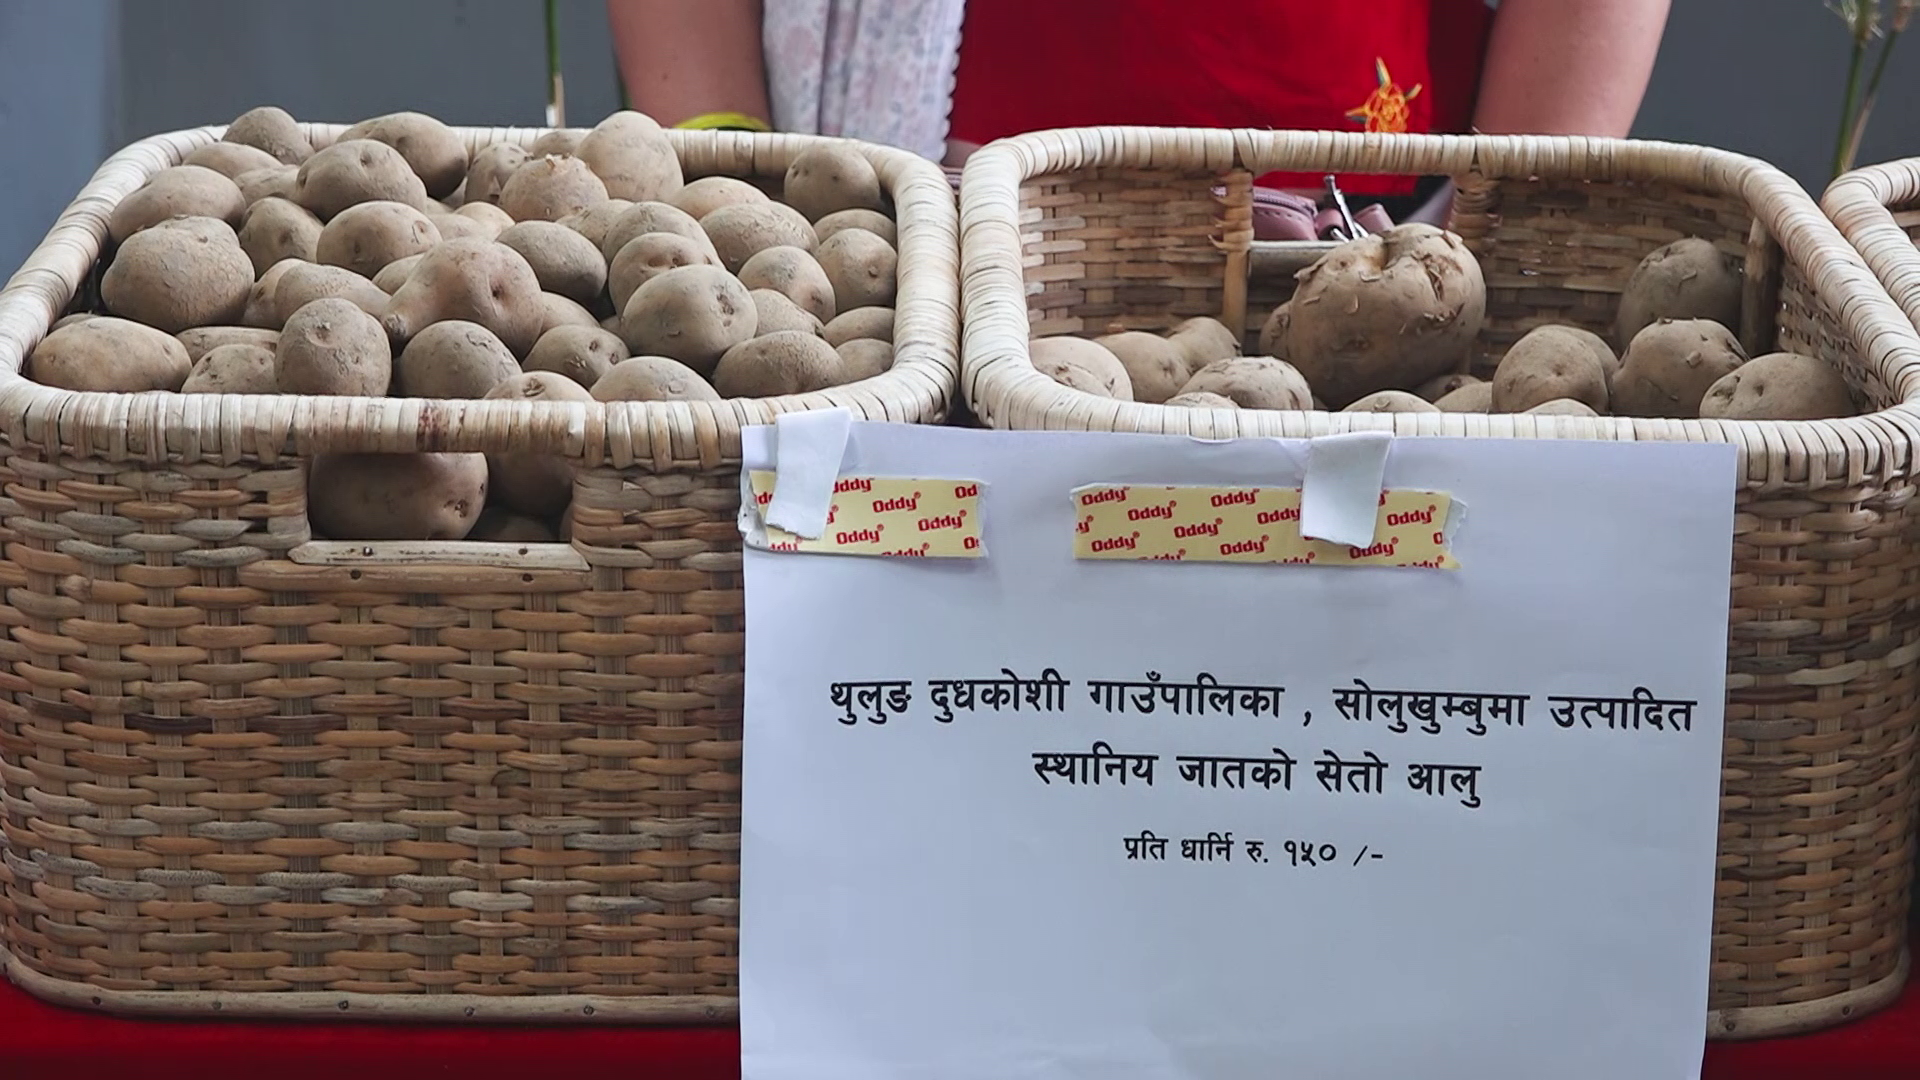 Oddy Oddy Oddy Oddy Oddy
Oddy Oddy Oddy Oddy Oddy
Oddy Oddy Oddy Oddy
थुलुङ दुधकोशी गाउँपालिका , सोलुखुम्बुमा उत्पादित
स्थानिय जातको सेतो आलु
प्रति धार्नि रु. १५० /-